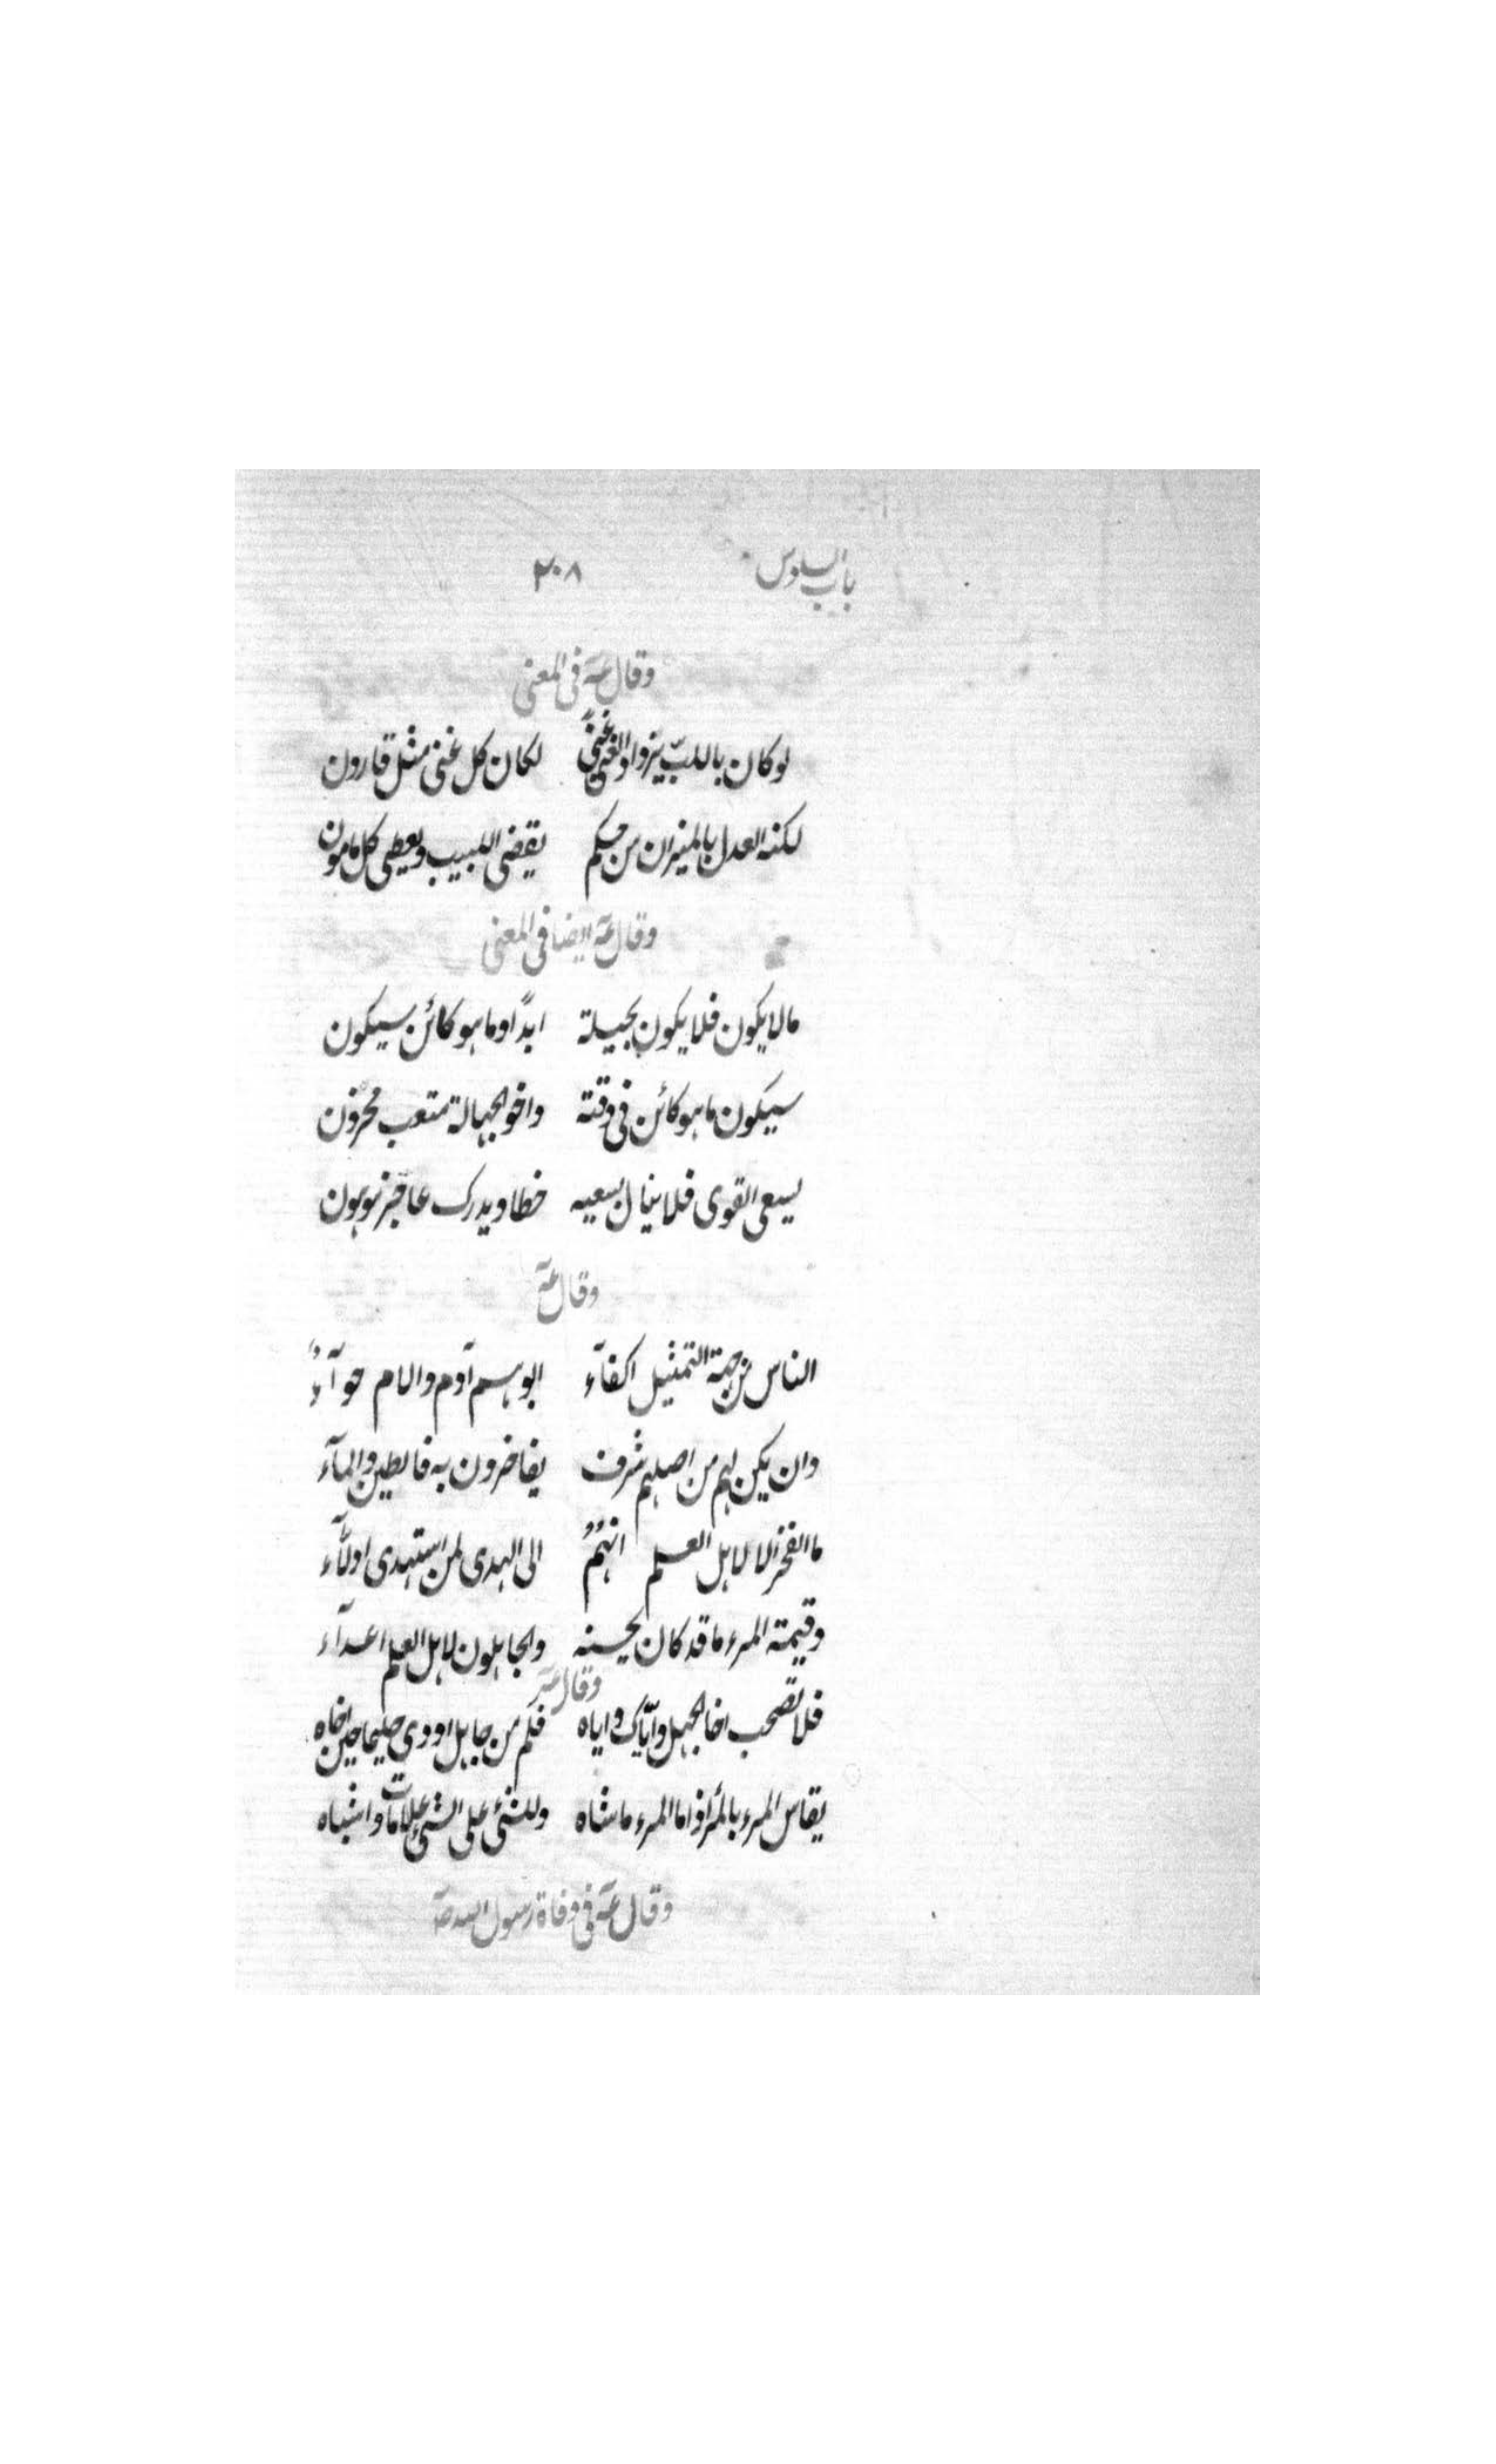 باب السادس ٢٠٨
وقال عه فى المعنى
لو كان باللبّ يزداد الغنى غنىً لكان كل غنى مثل قارون
لكنه العدل بالميزان من حكم يقضى اللبيب ويعطى كل مامون
وقال عه ايضا فى المعنى
مالا يكون فلا يكون بحيلة ابدًا وما هو كائن سيكون
سيكون ما هو كائن فى وقته واخو الجهالة متعب محزون
يسعى القوى فلا ينال بسعيه خطا ويدرك عاجز موهون
وقال عه
الناس من جهة التمثيل اكفآء ابوهم آدم والام حوآءُ
وان يكن لهم من اصلهم شرف يفاخرون به فالطين والمآء
ما الفخر الا لاهل العلم انهُمُ الى الهدى لمن استهدى اولّآء
وقيمة المرء ما قد كان يحسنه والجاهلون لاهل العلم اعدآء
وقال عه
فلا تصحب اخا الجهل وايّاك واياه فكم من جاهل اودى حليما حين اخاه
يقاس المرء بالمرء اذا ما المرء ماشاه وللشئ على الشئ علامات واشباه
وقال عه فى وفاة رسول الله صه